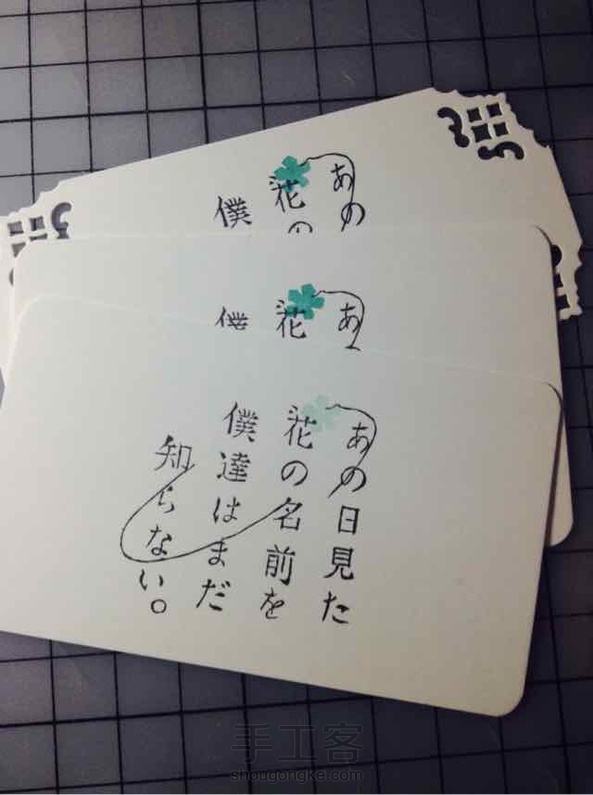 あの
花の
僕
あ
花
僕
あの日見た
花の名前を
僕達はまだ
知らない。
手工客
shougongke.com